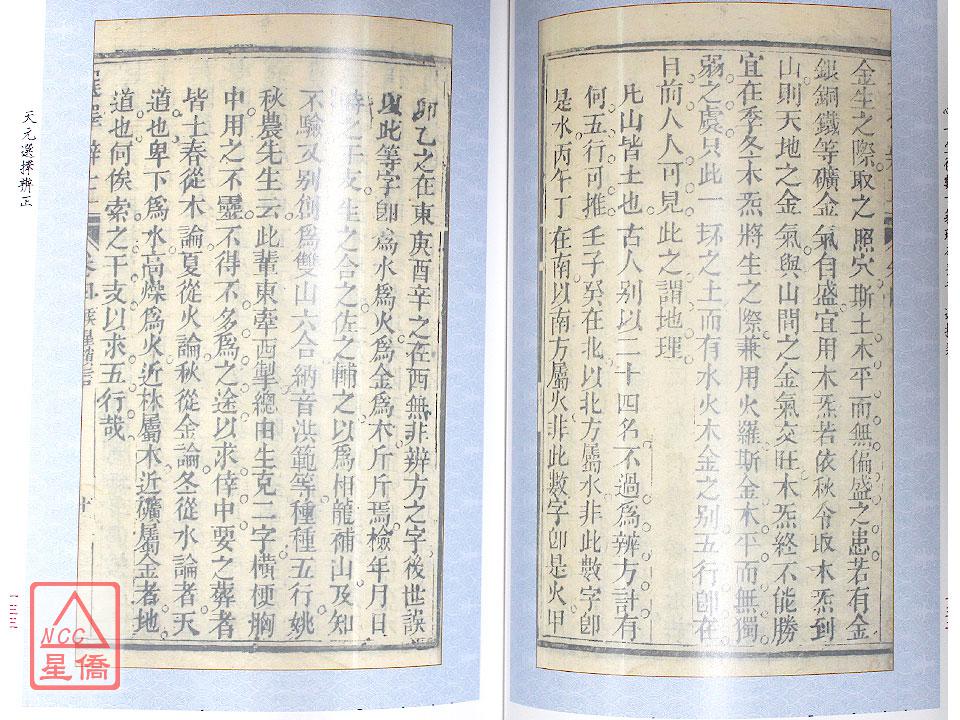 金生之際取之照穴斯土木平而無偏盛之患若有金
銀銅鐵等礦金氣自盛宜用木炁若依秋令取木炁到
山則天地之金氣與山間之金氣交旺木炁終不能勝
宜在季冬木炁將生之際兼用火羅斯金木平而無獨
弱之虞只此一抔之土而有水火木金之別五行卽在
目前人人可見此之謂地理
凡山皆土也古人別以二十四名不過爲辨方計有
何五行可推壬子癸在北以北方屬水非此數字卽
是水丙午丁在南以南方屬火非此數字卽是火甲
卯乙之在東庚酉辛之在西無非辨方之字後世誤
以此等字卽爲水爲火爲金爲木斤斤焉檢年月日
時之干支生之合之佐之輔之以爲相龍補山及知
不驗又別創爲雙山六合納音洪範等種種五行姚
秋農先生云此輩東牽西掣總由生克二字橫梗胸
中用之不靈不得不多爲之途以求倖中要之葬者
皆土春從木論夏從火論秋從金論冬從水論者天
道也卑下爲水高燥爲火近林屬木近礦屬金者地
道也何俟索之干支以求五行哉
天元選擇辨正
一三三
NCC
星僑